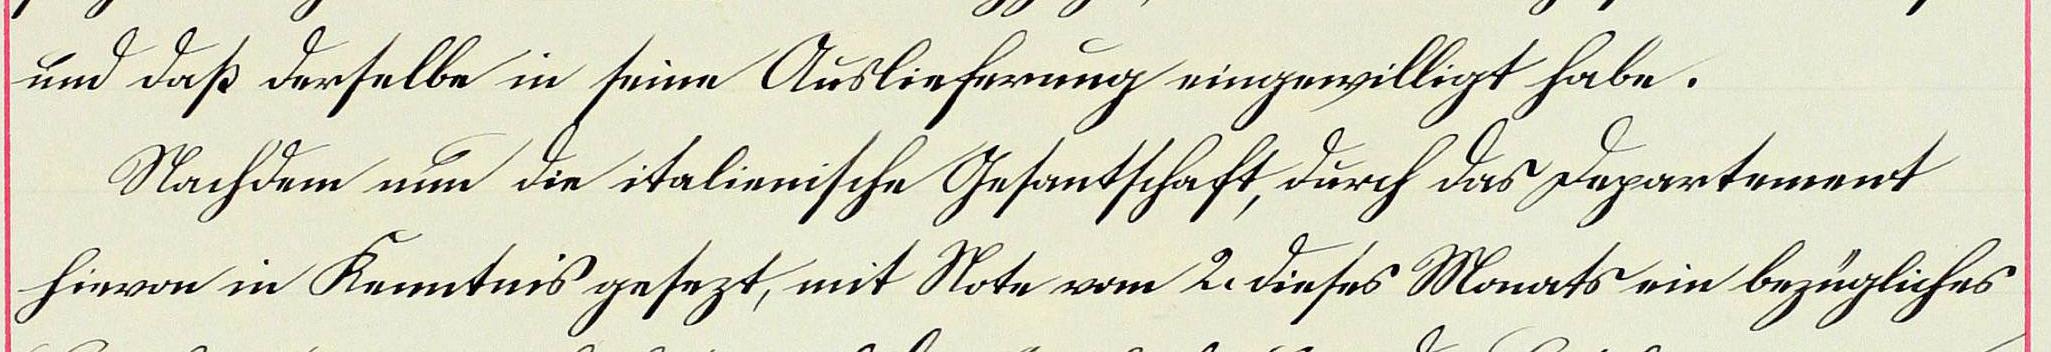 und daß derselbe in seine Auslieferung eingewilligt habe.
Nachdem nun die italienische Gesantschaft, durch das Departement
hievon in Kenntnis gesezt, mit Note vom 2. dieses Monats ein bezügliches